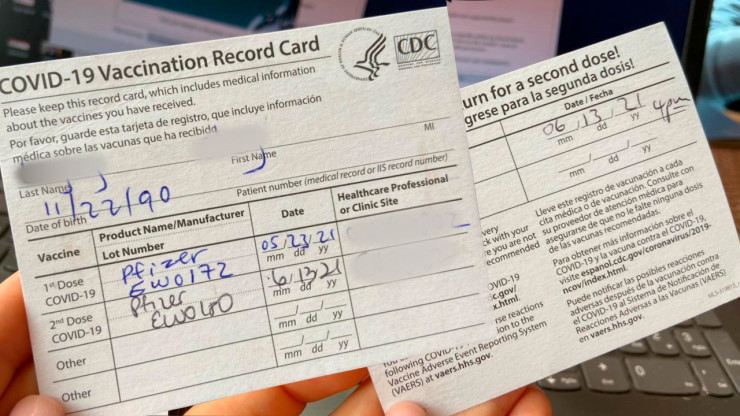 COVID-19 Vaccination Record Card
CDC
Please keep this record card, which includes medical information
about the vaccines you have received.
Por favor, guarde esta tarjeta de registro, que incluye información
médica sobre las vacunas que ha recibido
Last Name
First Name
MI
11/22/90
Date of birth
Patient number (medical record or IIS record number)
Vaccine
Product Name/Manufacturer
Lot Number
Date
Healthcare Professional
or Clinic Site
1st Dose
COVID-19
Pfizer
EW0172
05/23/21
mm dd yy
2nd Dose
COVID-19
Pfizer
6/13/21
mm dd yy
Other
mm dd yy
Other
mm dd yy
urn for a second dose!
grese para la segunda dosis!
Date / Fecha
06/13/21
4pm
mm dd yy
mm dd yy
very
ck with your
re you are not
ecommended
OVID-19
c.gov/
x.html.
rse reactions
following COVID
ion to the
Vaccine Adverse Event Reporting System
(VAERS) at vaers.hhs.gov.
Lleve este registro de vacunación a cada
cita médica o de vacunación. Consulte con
su proveedor de atención médica para
asegurarse de que no le falte ninguna dosis
de las vacunas recomendadas.
Para obtener más información sobre el
COVID-19 y la vacuna contra el COVID-19,
visite espanol.cdc.gov/coronavirus/2019-
ncov/index.html.
Puede notificar las posibles reacciones
adversas después de la vacunación contra
el COVID-19 al Sistema de Notificación de
Reacciones Adversas a las Vacunas (VAERS)
en vaers.hhs.gov.